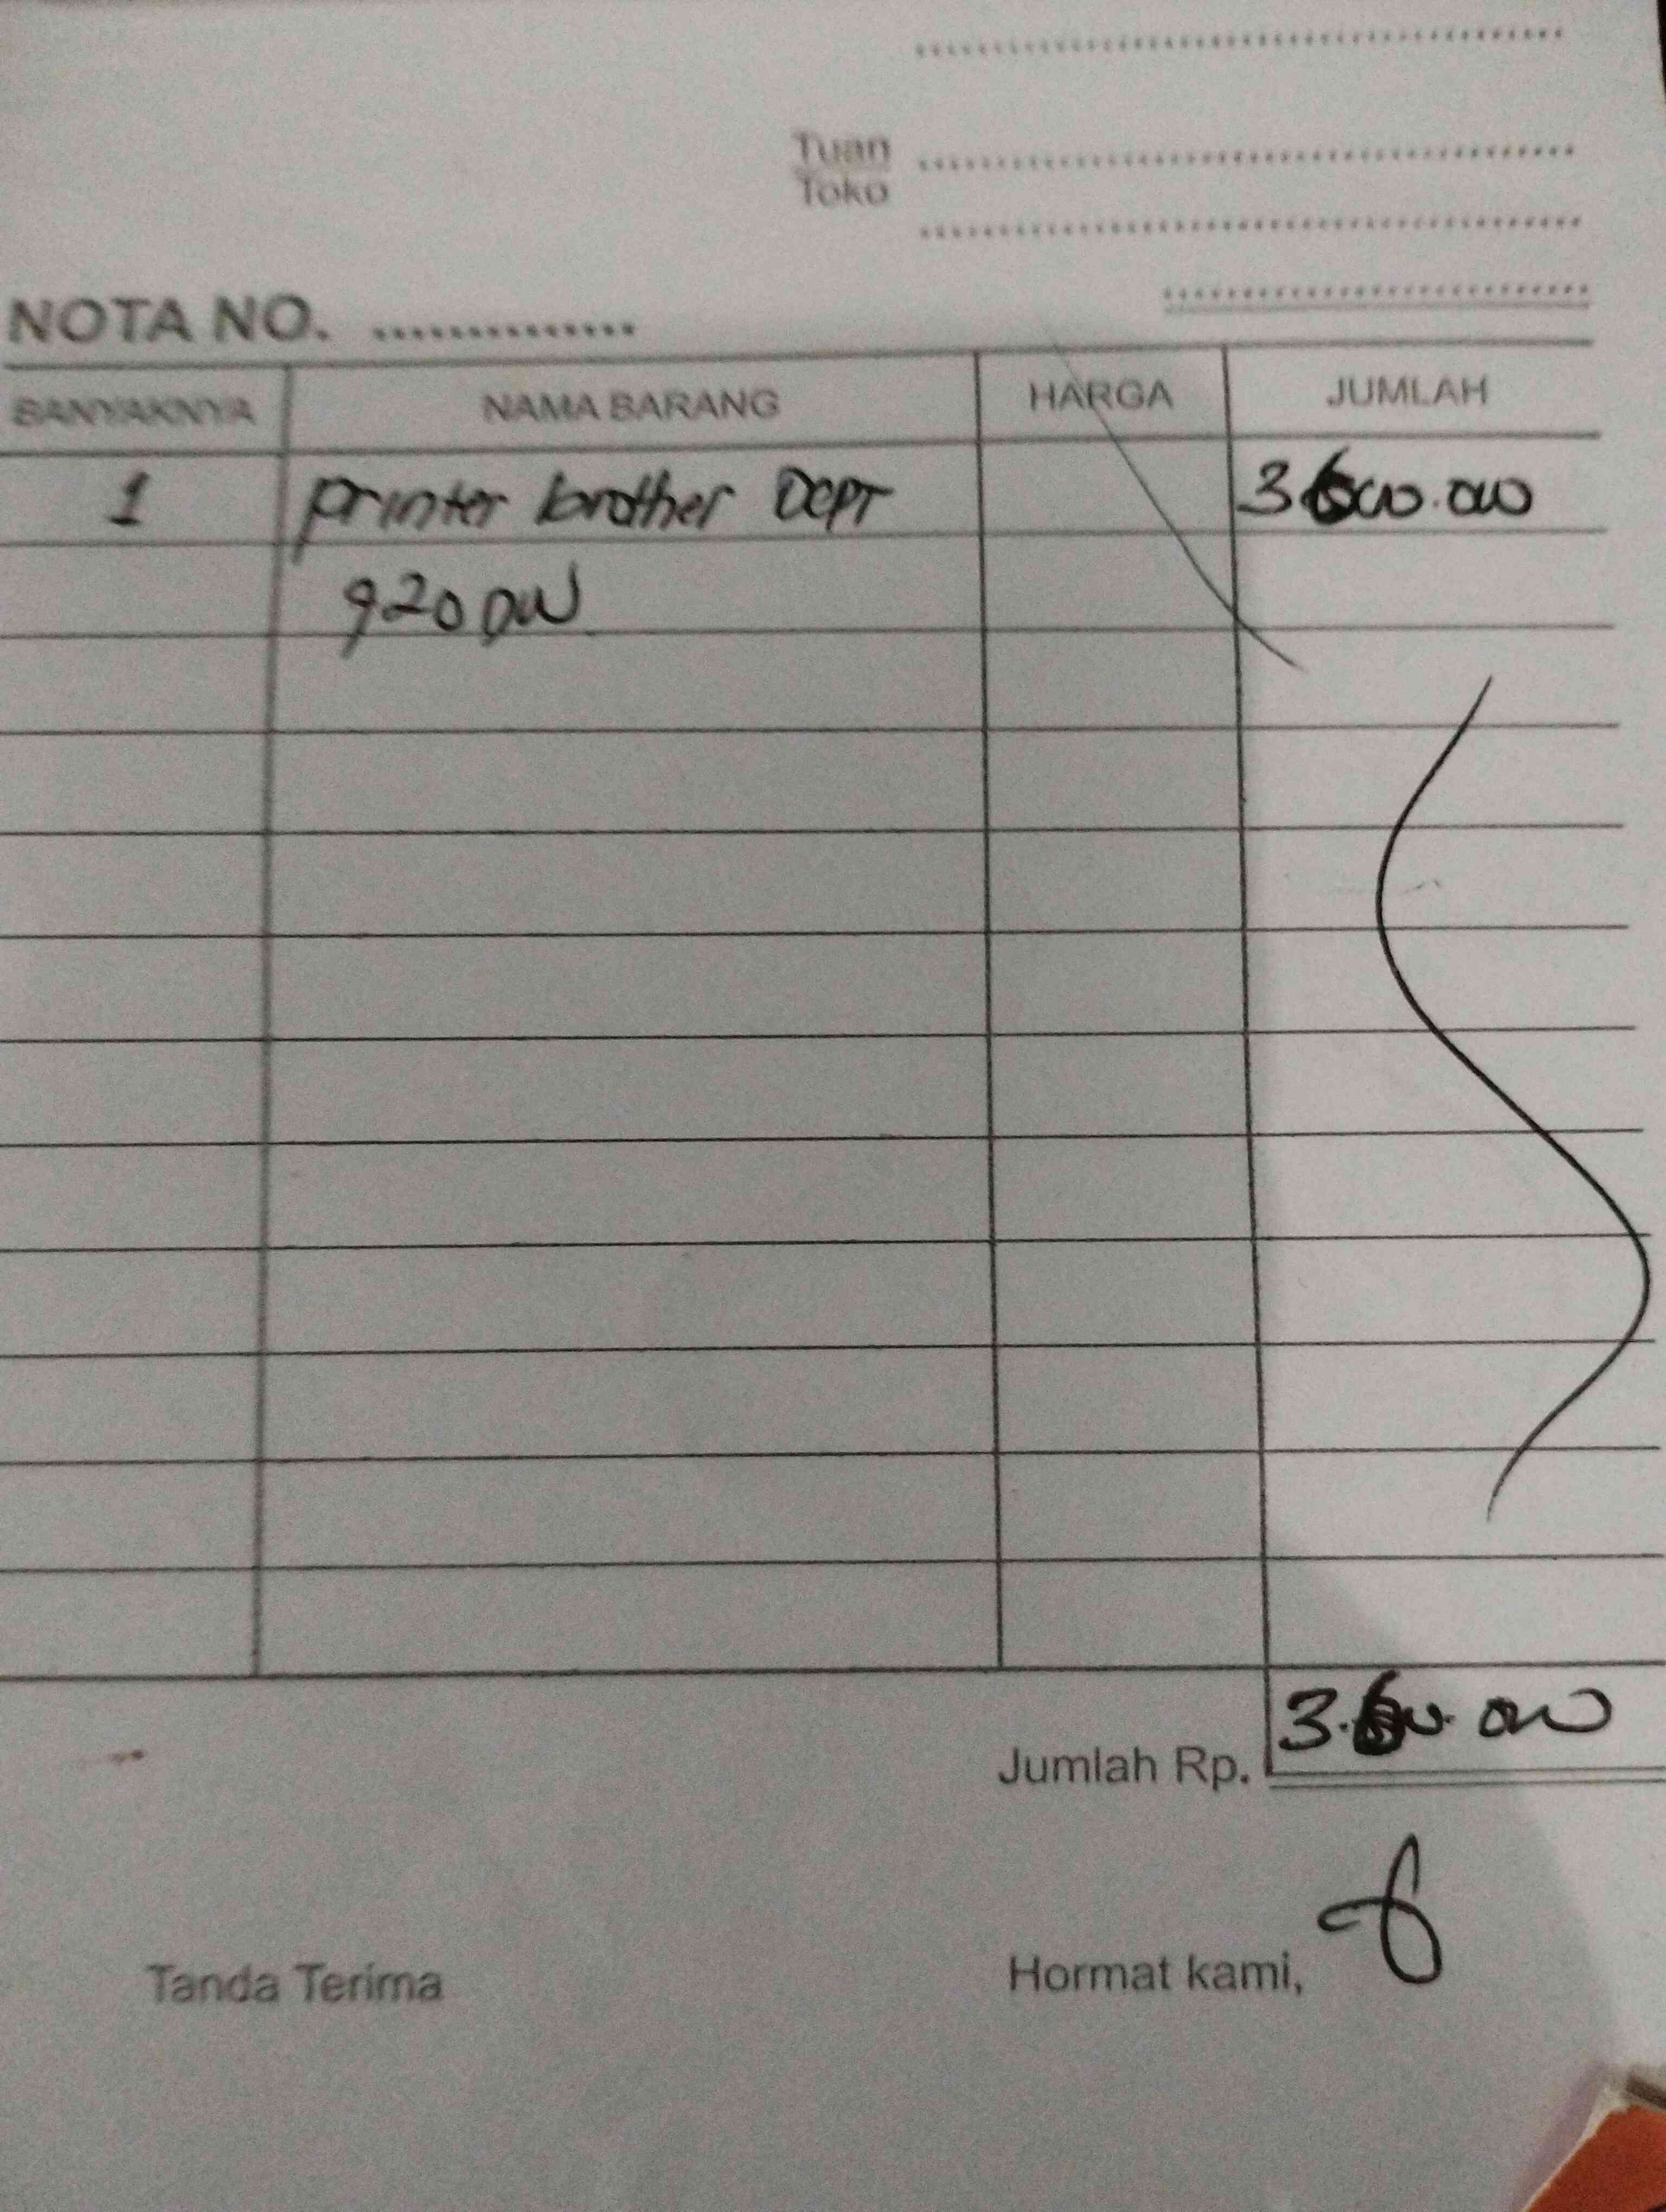 Tuan
Toko
NOTA NO. ..............
BANYAKNYA NAMA BARANG HARGA JUMLAH
1 printer brother DCPT 3.600.000
920 DW
Jumlah Rp. 3.600.000
Tanda Terima Hormat kami,